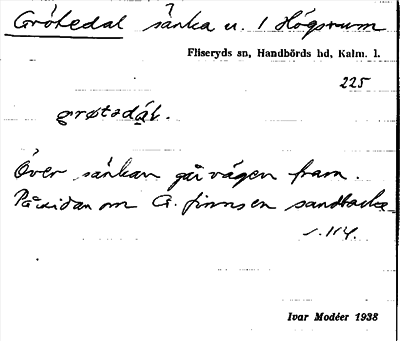 Grötedal sänka u. 1 Högsrum
Fliseryds sn, Handbörds hd, Kalm. l.
225
grøtedál.
Över sänkan går vägen fram.
På sidan om G. finns en sandbacke
s. 114.
Ivar Modéer 1938